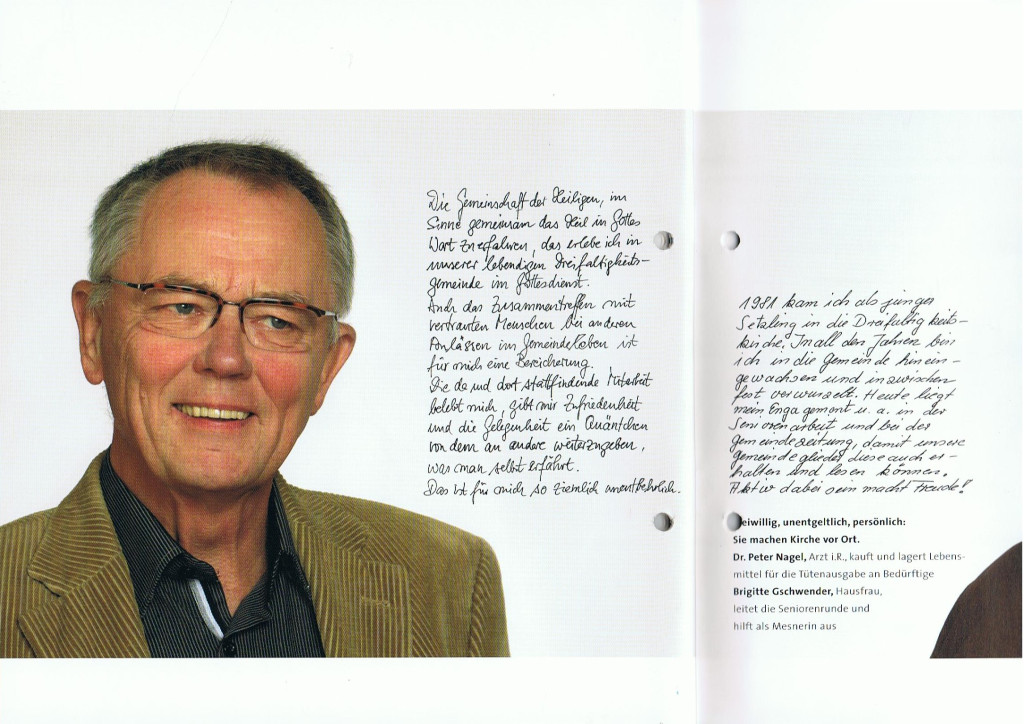 Die Gemeinschaft der Heiligen, im
Sinne gemeinsam das Heil in Gottes
Wort zu erfahren, das erlebe ich in
unserer lebendigen Dreifaltigkeits-
gemeinde im Gottesdienst.
Auch das Zusammentreffen mit
vertrauten Menschen bei anderen
Anlässen im Gemeindeleben ist
für mich eine Bereicherung.
Die da und dort stattfindende Mitarbeit
belebt mich, gibt mir Zufriedenheit
und die Gelegenheit ein Quäntchen
von dem an andere weiterzugeben,
was man selbst erfährt.
Das ist für mich so ziemlich unentbehrlich.
1981 kam ich als junger
Setzling in die Dreifaltigkeits-
kirche. In all den Jahren bin
ich in die Gemeinde hinein-
gewachsen und inzwischen
fest verwurzelt. Heute liegt
mein Engagement u. a. in der
Seniorenarbeit und bei der
Gemeindezeitung, damit unsere
Gemeindeglieder diese auch er-
halten und lesen können.
Aktiv dabei sein macht Freude!
eiwillig, unentgeltlich, persönlich:
Sie machen Kirche vor Ort.
Dr. Peter Nagel, Arzt i.R., kauft und lagert Lebens-
mittel für die Tütenausgabe an Bedürftige
Brigitte Gschwender, Hausfrau,
leitet die Seniorenrunde und
hilft als Mesnerin aus